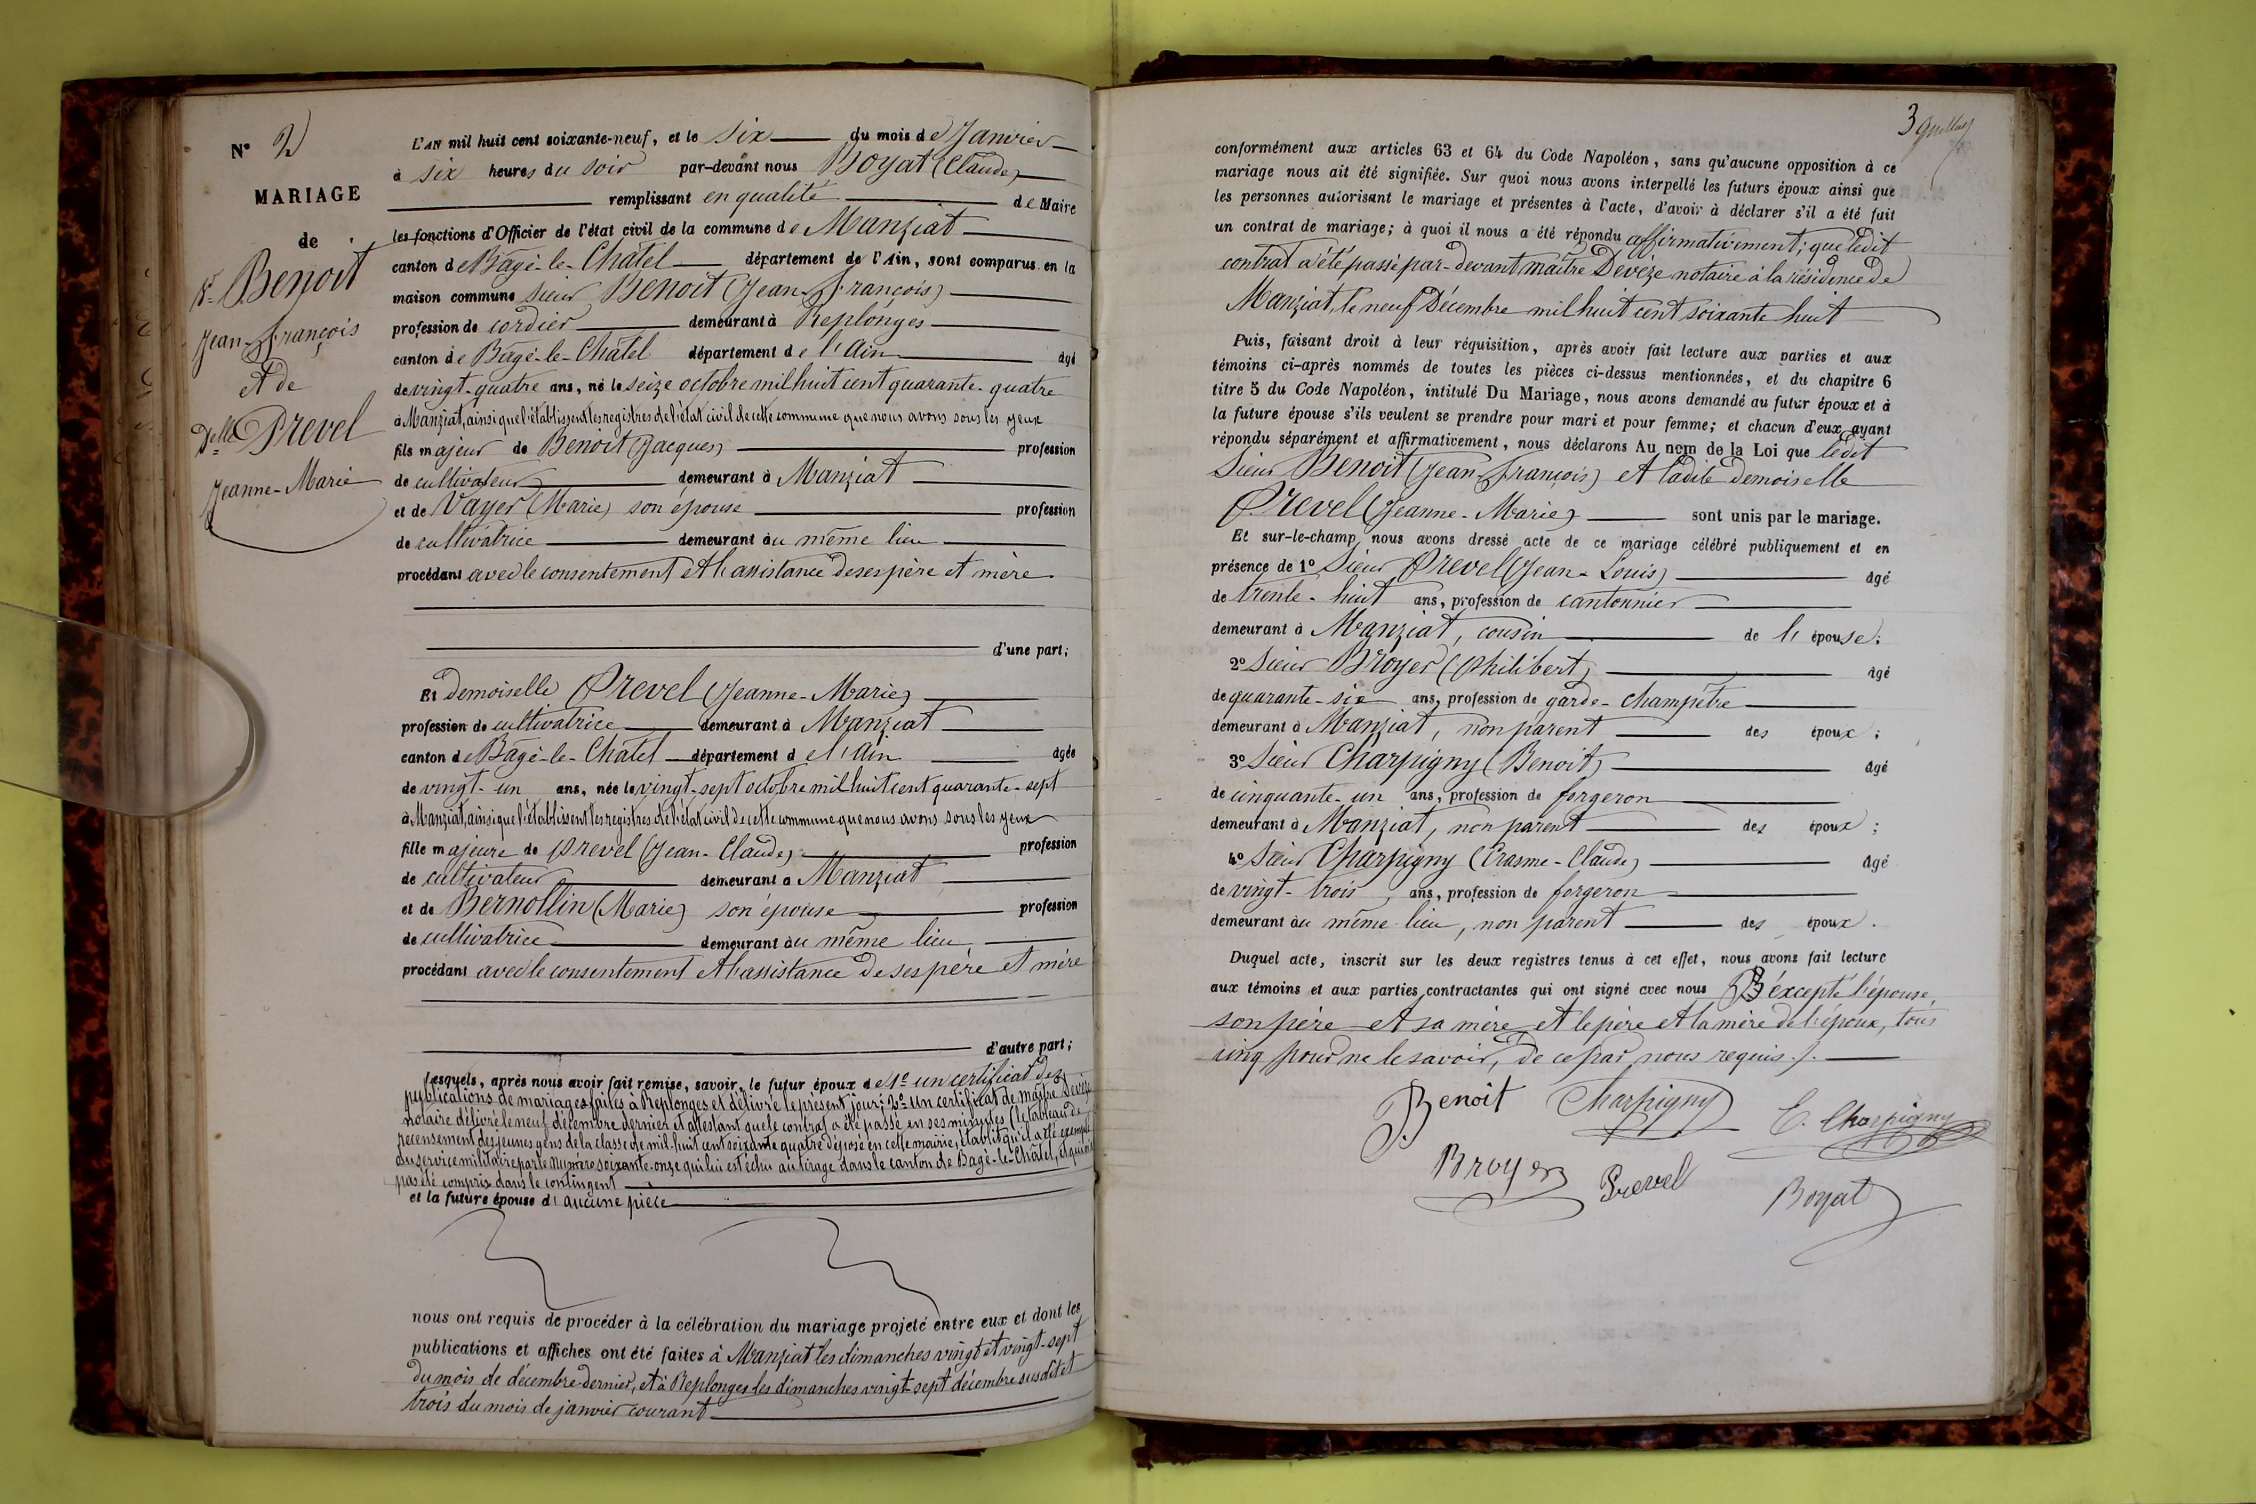 N° 2
MARIAGE
de
Sr. Benoit
Jean-François
Et de
Delle Prevel
Jeanne-Marie
L'AN mil huit cent soixante-neuf, et le six du mois de Janvier
à six heures du soir par-devant nous Boyat (Claude)
remplissant en qualité de Maire
les fonctions d'Officier de l'état civil de la commune de Manziat
canton de Bâgé-le-Châtel département de l'Ain, sont comparus en la
maison commune Sieur Benoit (Jean-François)
profession de cordier demeurant à Replonges
canton de Bâgé-le-Châtel département de l'Ain âgé
de vingt-quatre ans, né le seize octobre mil huit cent quarante-quatre
à Manziat, ainsi que l'établissent les registres de l'état civil de cette commune que nous avons sous les yeux
fils majeur de Benoit (Jacques) profession
de cultivateur demeurant à Manziat
et de Vayer (Marie) son épouse profession
de cultivatrice demeurant au même lieu
procédant avec le consentement et l'assistance de ses père et mère
d'une part;
Et demoiselle Prevel (Jeanne-Marie)
profession de cultivatrice demeurant à Manziat
canton de Bâgé-le-Châtel département de l'Ain âgée
de vingt-un ans, née le vingt-sept octobre mil huit cent quarante-sept
à Manziat, ainsi que l'établissent les registres de l'état civil de cette commune que nous avons sous les yeux
fille majeure de Prevel (Jean-Claude) profession
de cultivateur demeurant à Manziat
et de Bernollin (Marie) son épouse profession
de cultivatrice demeurant au même lieu
procédant avec le consentement et l'assistance de ses père et mère
d'autre part;
Lesquels, après nous avoir fait remise, savoir, le futur époux de 1° un certificat des
publications de mariage faites à Replonges et délivré le présent jour; 2° un certificat de maître Devèze
notaire délivré le neuf décembre dernier et attestant que le contrat a été passé en ses minutes (le tableau de
recensement des jeunes gens de la classe de mil huit cent soixante quatre déposé en cette mairie, établit qu'il a été exempté
du service militaire par le numéro soixante-onze qui lui est échu au tirage dans le canton de Bagé-le-Châtel, et qui n'a
pas été compris dans le contingent
et la future épouse d'aucune pièce
nous ont requis de procéder à la célébration du mariage projeté entre eux et dont les
publications et affiches ont été faites à Manziat les dimanches vingt et vingt-sept
du mois de décembre dernier, et à Replonges les dimanches vingt-sept décembre susdit et
trois du mois de janvier courant
3
conformément aux articles 63 et 64 du Code Napoléon, sans qu'aucune opposition à ce
mariage nous ait été signifiée. Sur quoi nous avons interpellé les futurs époux ainsi que
les personnes autorisant le mariage et présentes à l'acte, d'avoir à déclarer s'il a été fait
un contrat de mariage; à quoi il nous a été répondu affirmativement; que ledit
contrat a été passé par-devant maître Devèze notaire à la résidence de
Manziat, le neuf Décembre mil huit cent soixante huit
Puis, faisant droit à leur réquisition, après avoir fait lecture aux parties et aux
témoins ci-après nommés de toutes les pièces ci-dessus mentionnées, et du chapitre 6
titre 5 du Code Napoléon, intitulé Du Mariage, nous avons demandé au futur époux et à
la future épouse s'ils veulent se prendre pour mari et pour femme; et chacun d'eux ayant
répondu séparément et affirmativement, nous déclarons Au nom de la Loi que ledit
Sieur Benoit (Jean-François) et ladite demoiselle
Prevel (Jeanne-Marie) sont unis par le mariage.
Et sur-le-champ nous avons dressé acte de ce mariage célébré publiquement et en
présence de 1° Sieur Prevel (Jean-Louis) âgé
de trente-huit ans, profession de cantonnier
demeurant à Manziat, cousin de l'épouse;
2° Sieur Broyer (Philibert) âgé
de quarante-six ans, profession de garde-champêtre
demeurant à Manziat, non parent des époux;
3° Sieur Charpigny (Benoit) âgé
de cinquante-un ans, profession de forgeron
demeurant à Manziat, non parent des époux;
4° Sieur Charpigny (Erasme-Claude) âgé
de vingt-trois, ans, profession de forgeron
demeurant au même lieu, non parent des époux.
Duquel acte, inscrit sur les deux registres tenus à cet effet, nous avons fait lecture
aux témoins et aux parties contractantes qui ont signé avec nous éxcepté l'épouse,
son père et sa mère et le père et la mère de l'époux, tous
cinq pour ne le savoir, de ce par nous requis./.
Benoit Charpigny E. Charpigny
Broyer Prevel Boyat